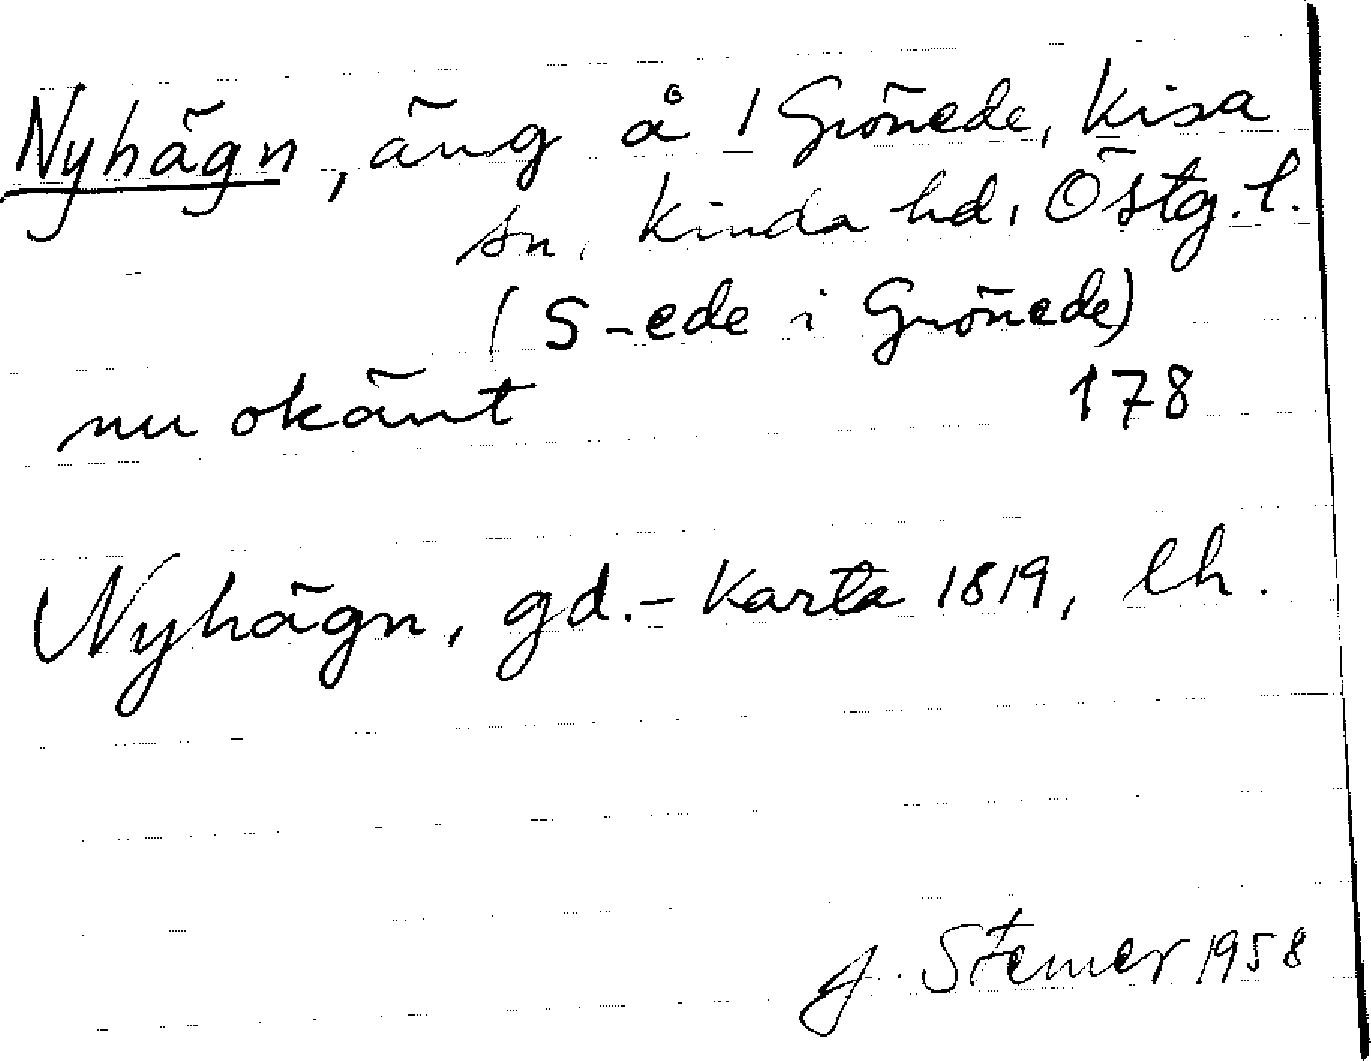 Nyhägn, äng å 1 Grönede, Kisa
sn, Kinda hd, Östg. l.
(S-ede i Grönede)
nu okänt 178
Nyhägn, gd. - Karta 1819, lh.
J. Stemer 1958